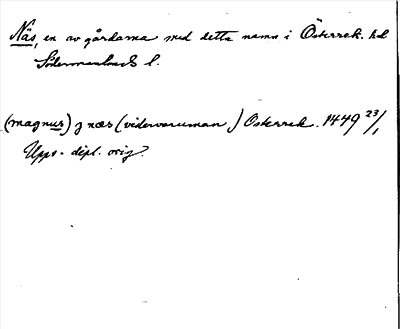 Näs, en av gårdarna med detta namn i Österrek. hd
Södermanlands l.
(magnus) j næs (vidervaruman) Osterrek. 1449 23/1
Upps. dipl. orig.